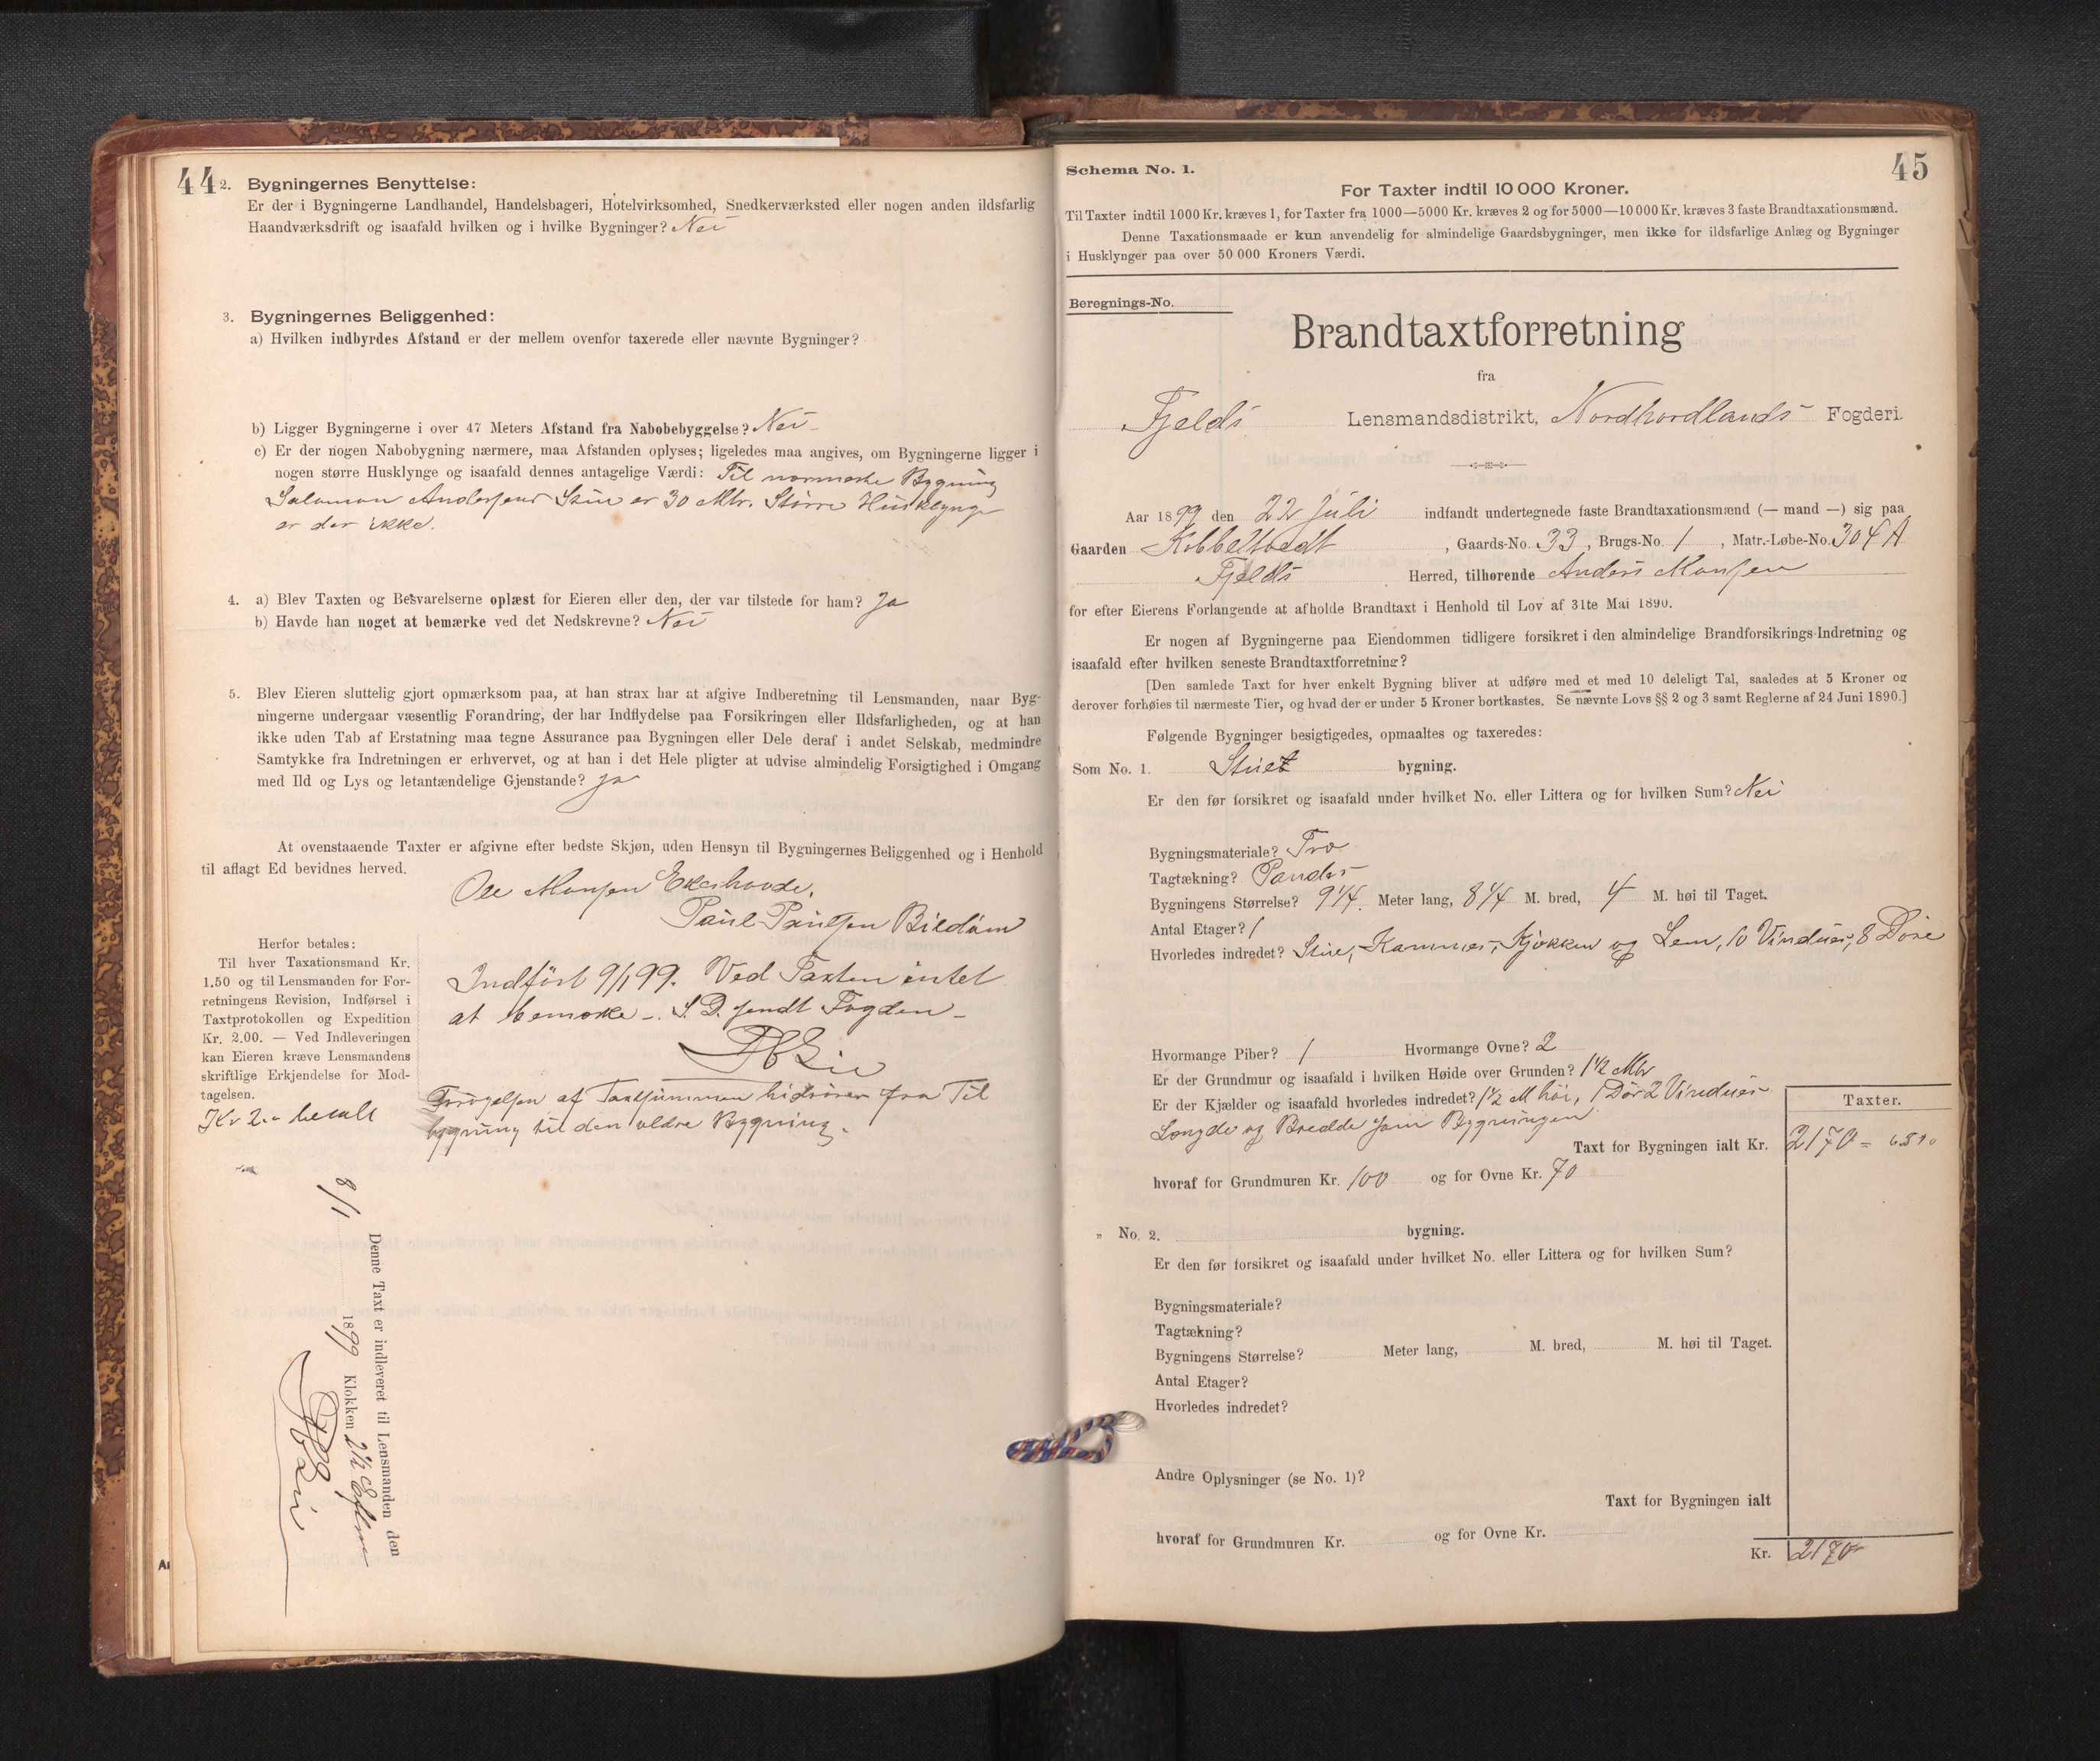 44
2. Bygningernes Benyttelse:
Er der i Bygningerne Landhandel, Handelsbageri, Hotelvirksomhed, Snedkerværksted eller nogen anden ildsfarlig
Haandværksdrift og isaafald hvilken og i hvilke Bygninger? Nei
3. Bygningernes Beliggenhed:
a) Hvilken indbyrdes Afstand er der mellem ovenfor taxerede eller nævnte Bygninger?
b) Ligger Bygningerne i over 47 Meters Afstand fra Nabobebyggelse? Nei
c) Er der nogen Nabobygning nærmere, maa Afstanden oplyses; ligeledes maa angives, om Bygningerne ligger i
nogen større Husklynge og isaafald dennes antagelige Værdi: Til nærmeste Bygning
Salomon Andersens Stue er 30 Mtr. Større Husklynge
er der ikke.
4. a) Blev Taxten og Besvarelserne oplæst for Eieren eller den, der var tilstede for ham? Ja
b) Havde han noget at bemærke ved det Nedskrevne? Nei
5. Blev Eieren sluttelig gjort opmærksom paa, at han strax har at afgive Indberetning til Lensmanden, naar Byg-
ningerne undergaar væsentlig Forandring, der har Indflydelse paa Forsikringen eller Ildsfarligheden, og at han
ikke uden Tab af Erstatning maa tegne Assurance paa Bygningen eller Dele deraf i andet Selskab, medmindre
Samtykke fra Indretningen er erhvervet, og at han i det Hele pligter at udvise almindelig Forsigtighed i Omgang
med Ild og Lys og letantændelige Gjenstande? Ja
At ovenstaaende Taxter er afgivne efter bedste Skjøn, uden Hensyn til Bygningernes Beliggenhed og i Henhold
til aflagt Ed bevidnes herved.
Ole Monsen Ekerhovde.
Paul Paulsen Bildøen
Herfor betales:
Til hver Taxationsmand Kr.
1.50 og til Lensmanden for For-
retningens Revision, Indførsel i
Taxtprotokollen og Expedition
Kr. 2.00. — Ved Indleveringen
kan Eieren kræve Lensmandens
skriftlige Erkjendelse for Mod-
tagelsen.
Kr 2.- betalt
Indført 9/1 99. Ved Taxten intet
at bemærke -. S. D. sendt Fogden -
Forøgelsen af Taxtsummen hidrører fra Til
bygning til den ældre Bygning.
Denne Taxt er indleveret til Lensmanden den
8/1 1899 Klokken 2½ Eftm
45
Schema No. 1.
For Taxter indtil 10 000 Kroner.
Til Taxter indtil 1000 Kr. kræves 1, for Taxter fra 1000—5000 Kr. kræves 2 og for 5000—10 000 Kr. kræves 3 faste Brandtaxationsmænd.
Denne Taxationsmaade er kun anvendelig for almindelige Gaardsbygninger, men ikke for ildsfarlige Anlæg og Bygninger
i Husklynger paa over 50 000 Kroners Værdi.
Beregnings-No.
Brandtaxtforretning
fra
Fjelds Lensmandsdistrikt, Nordhordlands Fogderi.
Aar 1899 den 22 Juli indfandt undertegnede faste Brandtaxationsmænd (— mand —) sig paa
Gaarden Kobbeltvedt, Gaards-No. 33, Brugs-No. 1, Matr.-Løbe-No. 304 A
Fjelds Herred, tilhørende Anders Monsen
for efter Eierens Forlangende at afholde Brandtaxt i Henhold til Lov af 31te Mai 1890.
Er nogen af Bygningerne paa Eiendommen tidligere forsikret i den almindelige Brandforsikrings-Indretning og
isaafald efter hvilken seneste Brandtaxtforretning?
[Den samlede Taxt for hver enkelt Bygning bliver at udføre med et med 10 deleligt Tal, saaledes at 5 Kroner og
derover forhøies til nærmeste Tier, og hvad der er under 5 Kroner bortkastes. Se nævnte Lovs §§ 2 og 3 samt Reglerne af 24 Juni 1890.]
Følgende Bygninger besigtigedes, opmaaltes og taxeredes:
Som No. 1. Stue bygning.
Er den før forsikret og isaafald under hvilket No. eller Littera og for hvilken Sum? Nei
Bygningsmateriale? Træ
Tagtækning? Pander
Bygningens Størrelse? 9¼ Meter lang, 8¼ M. bred, 4 M. høi til Taget.
Antal Etager? 1
Hvorledes indredet? Stue, Kammer, Kjøkken og Lem, 10 Vinduer, 8 Døre
Hvormange Piber? 1 Hvormange Ovne? 2
Er der Grundmur og isaafald i hvilken Høide over Grunden? 1½ Mtr
Er der Kjælder og isaafald hvorledes indredet? 1½ M høi, 1 Dør 2 Vinduer
Længde og Bredde som Bygningen
Taxter.
Taxt for Bygningen ialt Kr. 2170 =
hvoraf for Grundmuren Kr. 100 og for Ovne Kr. 70
„ No. 2. bygning.
Er den før forsikret og isaafald under hvilket No. eller Littera og for hvilken Sum?
Bygningsmateriale?
Tagtækning?
Bygningens Størrelse? Meter lang, M. bred, M. høi til Taget.
Antal Etager?
Hvorledes indredet?
Andre Oplysninger (se No. 1)?
Taxt for Bygningen ialt
hvoraf for Grundmuren Kr. og for Ovne Kr.
Kr. 2170